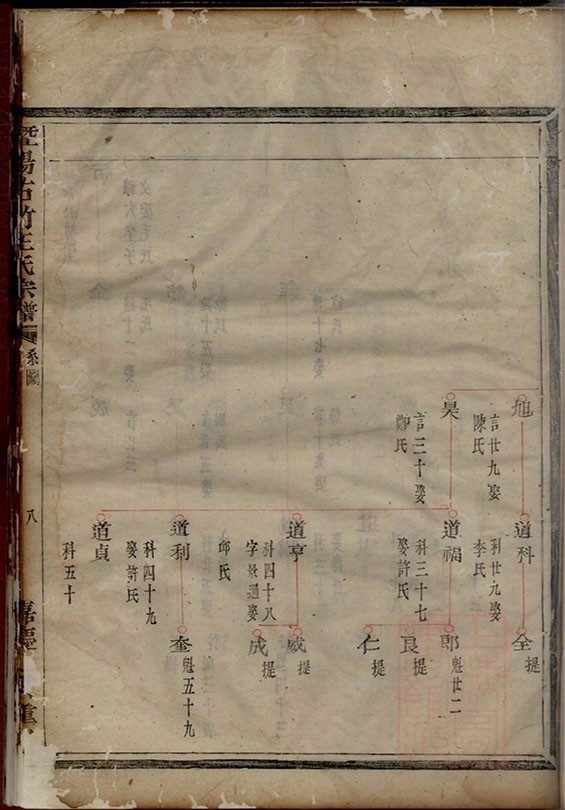 旭
言廿九娶
陳氏
昊
言三十娶
鄭氏
道科
科廿九娶
李氏
道福
科三十七
娶許氏
道亨
科四十八
字景通娶
邱氏
道利
科四十九
娶許氏
道貞
科五十
全
提
郎
魁廿二
良
提
仁
提
威
提
成
提
奎
魁五十九
暨陽古竹王氏宗譜
系圖
八